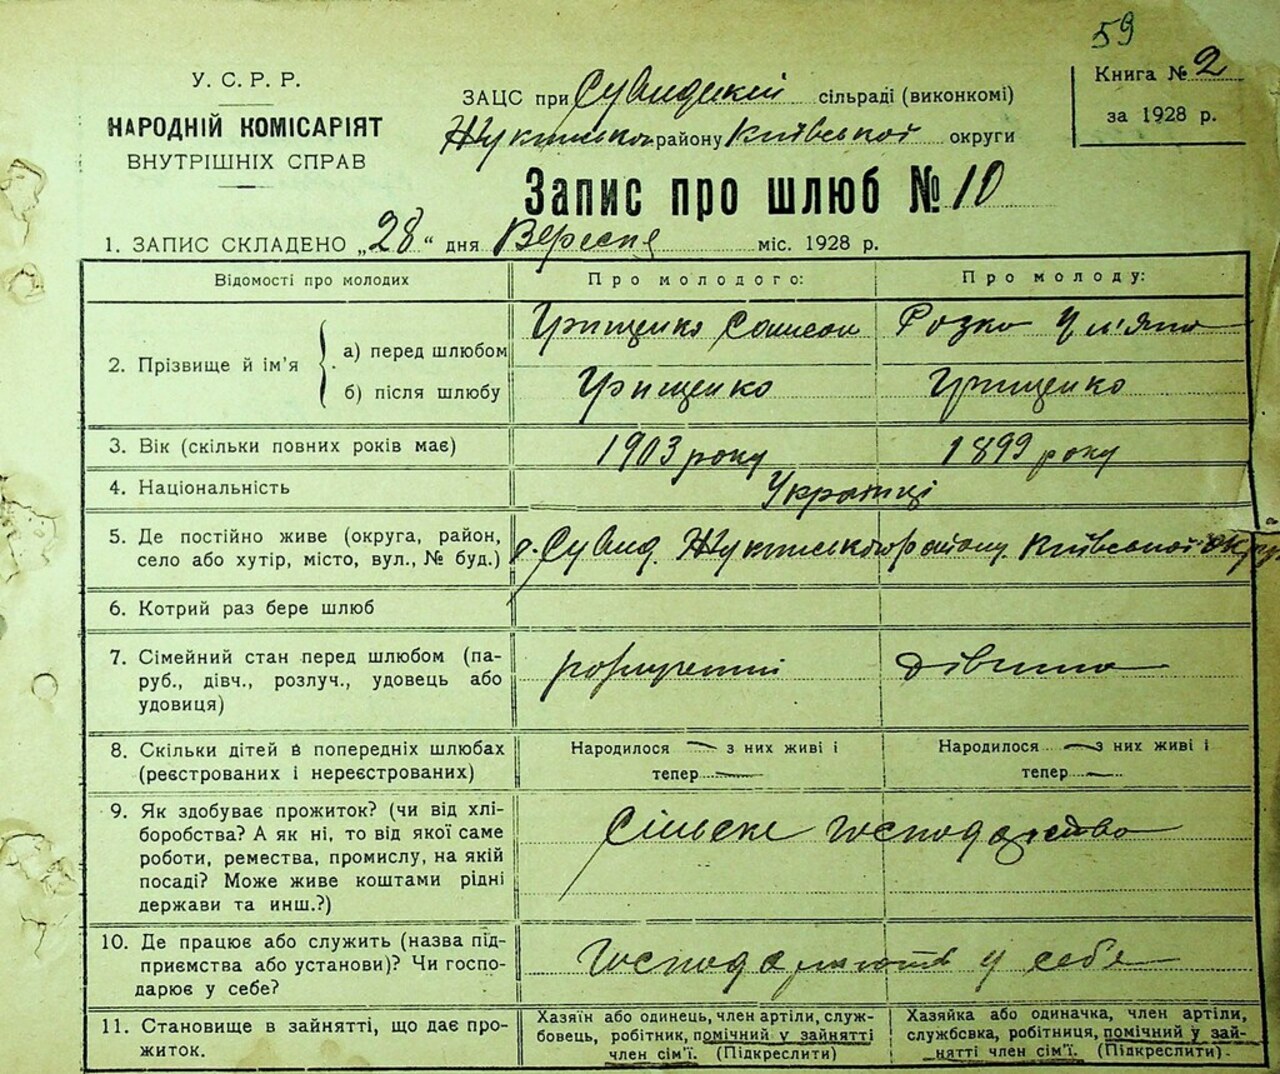 59
У. С. Р. Р.
НАРОДНІЙ КОМІСАРІЯТ
ВНУТРІШНІХ СПРАВ
ЗАЦС при Сувидській сільраді (виконкомі)
Жукинського району Київської округи
Книга № 2
за 1928 р.
Запис про шлюб № 10
1. ЗАПИС СКЛАДЕНО „28“ дня Вересня міс. 1928 р.
Відомості про молодих
Про молодого:
Про молоду:
2. Прізвище й ім’я
а) перед шлюбом
Грищенко Самсон
Розко Ул'яна
б) після шлюбу
Грищенко
Грищенко
3. Вік (скільки повних років має)
1903 року
1899 року
4. Національність
Українці
5. Де постійно живе (округа, район,
село або хутір, місто, вул., № буд.)
с. Сувид. Жукинського району Київської округ
6. Котрий раз бере шлюб
7. Сімейний стан перед шлюбом (па-
руб., дівч., розлуч., удовець або
удовиця)
розлученні
дівчина
8. Скільки дітей в попередніх шлюбах
(реєстрованих і нереєстрованих)
Народилося — з них живі і
тепер —
Народилося — з них живі і
тепер —
9. Як здобуває прожиток? (чи від хлі-
боробства? А як ні, то від якої саме
роботи, ремества, промислу, на якій
посаді? Може живе коштами рідні
держави та инш.?)
Сільске господарство
10. Де працює або служить (назва під-
приємства або установи)? Чи госпо-
дарює у себе?
Господарюють у себе
11. Становище в зайнятті, що дає про-
житок.
Хазяїн або одинець, член артіли, служ-
бовець, робітник, помічний у зайнятті
член сім’ї. (Підкреслити)
Хазяйка або одиначка, член артіли,
службовка, робітниця, помічний у зай-
нятті член сім’ї. (Підкреслити).